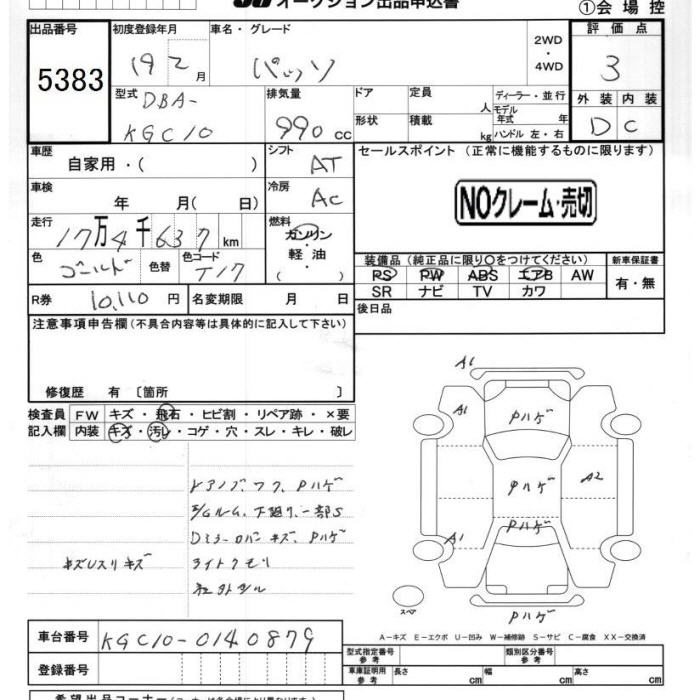 オークション出品申込書
①会場控
出品番号
5383
初度登録年月
19 2月
車名・グレード
パッソ
2WD
・
4WD
評価点
3
型式
DBA-
KGC10
排気量
990 cc
ドア
形状
定員
人
積載
kg
ディーラー・並行
モデル年式 年
ハンドル 左・右
外装 内装
D C
車歴
自家用・( )
シフト
AT
車検
年 月( 日)
冷房
AC
走行
17万4千637km
燃料
ガソリン
軽油
( )
色
ゴールド
色替
色コード
T17
R券
10,110円
名変期限 月 日
セールスポイント (正常に機能するものに限ります)
NOクレーム・売切
装備品(純正品に限り○をつけてください)
PS PW ABS エアB AW
SR ナビ TV カワ
新車保証書
有・無
後日品
注意事項申告欄(不具合内容等は具体的に記入して下さい)
修復歴 有〔箇所 〕
検査員記入欄
FW キズ・飛石・ヒビ割・リペア跡・×要
内装 キズ・汚レ・コゲ・穴・スレ・キレ・破レ
Pハゲ
下廻り、一部S
Dミラーカバー キズ、Pハゲ
キズレスリキズ
ライトクモリ
A1
A1
Pハゲ
Pハゲ
A2
Pハゲ
A1
Pハゲ
スペア
A-キズ E-エクボ U-凹み W-補修跡 S-サビ C-腐食 XX-交換済
車台番号
KGC10-0140879
登録番号
型式指定番号
参考
類別区分番号
参考
車庫証明用
参考
長さ cm
幅 cm
高さ cm
希望出品コーナー